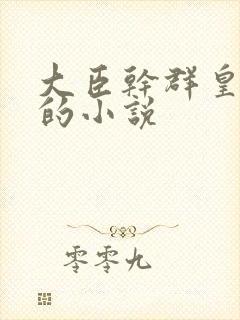 大臣幹群皇
的小說
零零九